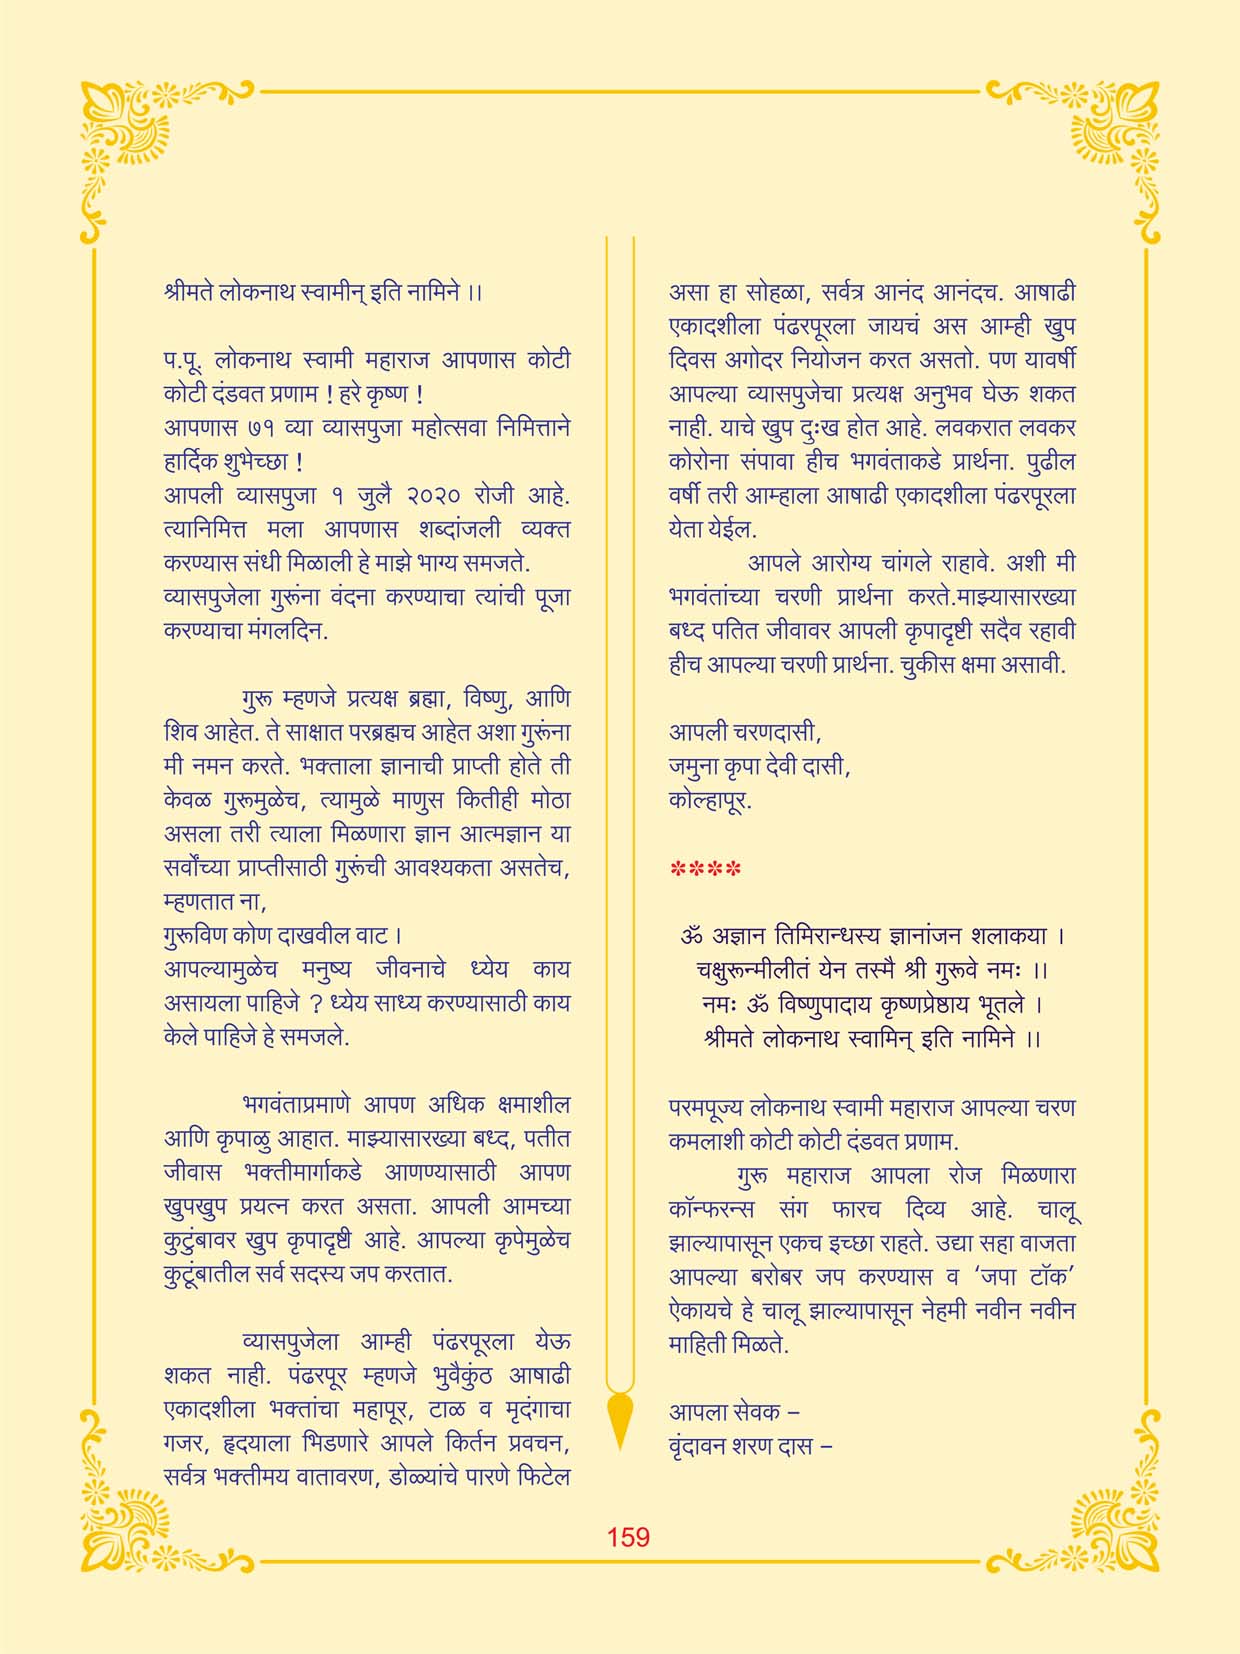 श्रीमते लोकनाथ स्वामीन् इति नामिने ।।
प.पू. लोकनाथ स्वामी महाराज आपणास कोटी
कोटी दंडवत प्रणाम ! हरे कृष्ण !
आपणास ७१ व्या व्यासपुजा महोत्सवा निमित्ताने
हार्दिक शुभेच्छा !
आपली व्यासपुजा १ जुलै २०२० रोजी आहे.
त्यानिमित्त मला आपणास शब्दांजली व्यक्त
करण्यास संधी मिळाली हे माझे भाग्य समजते.
व्यासपुजेला गुरूंना वंदना करण्याचा त्यांची पूजा
करण्याचा मंगलदिन.
गुरू म्हणजे प्रत्यक्ष ब्रह्मा, विष्णु, आणि
शिव आहेत. ते साक्षात परब्रह्मच आहेत अशा गुरूंना
मी नमन करते. भक्ताला ज्ञानाची प्राप्ती होते ती
केवळ गुरूमुळेच, त्यामुळे माणुस कितीही मोठा
असला तरी त्याला मिळणारा ज्ञान आत्मज्ञान या
सर्वांच्या प्राप्तीसाठी गुरूंची आवश्यकता असतेच,
म्हणतात ना,
गुरूविण कोण दाखवील वाट ।
आपल्यामुळेच मनुष्य जीवनाचे ध्येय काय
असायला पाहिजे ? ध्येय साध्य करण्यासाठी काय
केले पाहिजे हे समजले.
भगवंताप्रमाणे आपण अधिक क्षमाशील
आणि कृपाळु आहात. माझ्यासारख्या बध्द, पतीत
जीवास भक्तीमार्गाकडे आणण्यासाठी आपण
खुपखुप प्रयत्न करत असता. आपली आमच्या
कुटुंबावर खुप कृपादृष्टी आहे. आपल्या कृपेमुळेच
कुटूंबातील सर्व सदस्य जप करतात.
व्यासपुजेला आम्ही पंढरपूरला येऊ
शकत नाही. पंढरपूर म्हणजे भुवैकुंठ आषाढी
एकादशीला भक्तांचा महापूर, टाळ व मृदंगाचा
गजर, हृदयाला भिडणारे आपले किर्तन प्रवचन,
सर्वत्र भक्तीमय वातावरण, डोळ्यांचे पारणे फिटेल
असा हा सोहळा, सर्वत्र आनंद आनंदच. आषाढी
एकादशीला पंढरपूरला जायचं अस आम्ही खुप
दिवस अगोदर नियोजन करत असतो. पण यावर्षी
आपल्या व्यासपुजेचा प्रत्यक्ष अनुभव घेऊ शकत
नाही. याचे खुप दुःख होत आहे. लवकरात लवकर
कोरोना संपावा हीच भगवंताकडे प्रार्थना. पुढील
वर्षी तरी आम्हाला आषाढी एकादशीला पंढरपूरला
येता येईल.
आपले आरोग्य चांगले राहावे. अशी मी
भगवंतांच्या चरणी प्रार्थना करते.माझ्यासारख्या
बध्द पतित जीवावर आपली कृपादृष्टी सदैव रहावी
हीच आपल्या चरणी प्रार्थना. चुकीस क्षमा असावी.
आपली चरणदासी,
जमुना कृपा देवी दासी,
कोल्हापूर.
****
ॐ अज्ञान तिमिरान्धस्य ज्ञानांजन शलाकया ।
चक्षुरून्मीलीतं येन तस्मै श्री गुरूवे नमः ।।
नमः ॐ विष्णुपादाय कृष्णप्रेष्ठाय भूतले ।
श्रीमते लोकनाथ स्वामिन् इति नामिने ।।
परमपूज्य लोकनाथ स्वामी महाराज आपल्या चरण
कमलाशी कोटी कोटी दंडवत प्रणाम.
गुरू महाराज आपला रोज मिळणारा
कॉन्फरन्स संग फारच दिव्य आहे. चालू
झाल्यापासून एकच इच्छा राहते. उद्या सहा वाजता
आपल्या बरोबर जप करण्यास व ‘जपा टॉक’
ऐकायचे हे चालू झाल्यापासून नेहमी नवीन नवीन
माहिती मिळते.
आपला सेवक –
वृंदावन शरण दास –
159